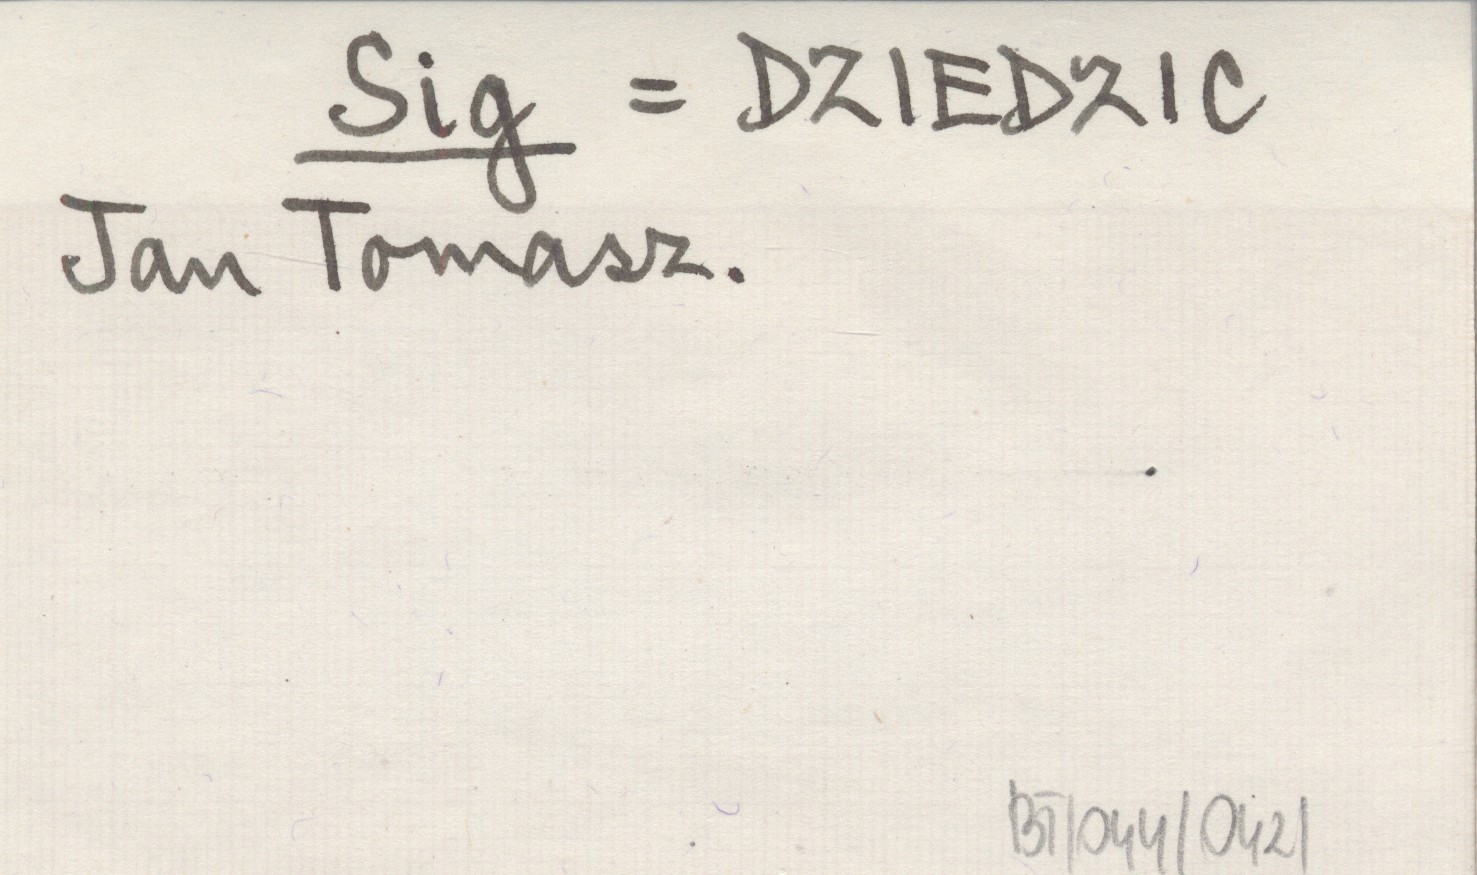 Sig = DZIEDZIC
Jan Tomasz.
BT/044/042/